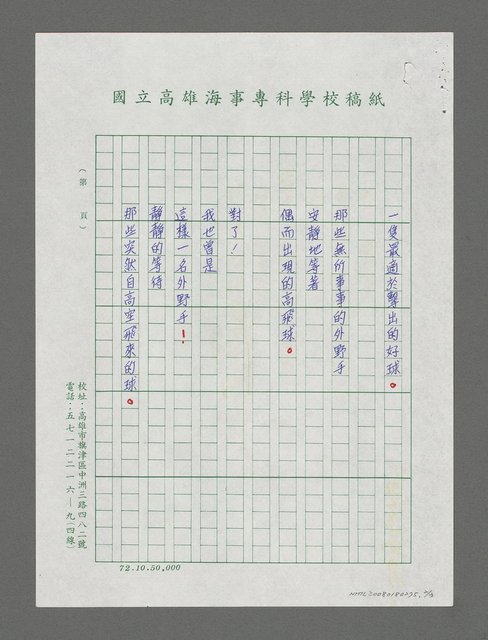 國立高雄海事專科學校稿紙
一隻最適於擊出的好球。
那些無所事事的外野手
安靜地等著
偶而出現的高飛球。
對了！
我也曾是
這樣一名外野手！
靜靜的等待
那些突然自高空飛來的球。
（第　頁）
校址：高雄市旗津區中洲三路四八二號
電話：五七一二二一六—九（四線）
72.10.50,000